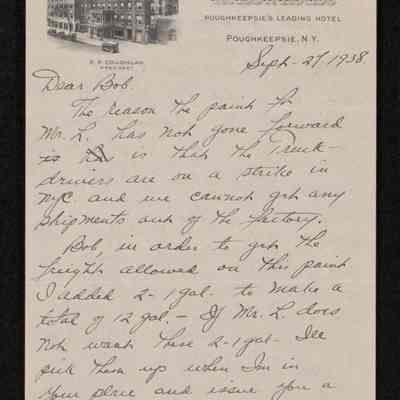 POUGHKEEPSIE'S LEADING HOTEL
POUGHKEEPSIE, N.Y.
PRESIDENT
Sept. 27, 1938.
Dear Bob.
The reason the paint for
Mr. L. has not gone forward
is is that the Truck-
drivers are on a strike in
NYC and we cannot get any
shipments out of the factory.
Bob, in order to get the
freight allowed on this paint
I added 2-1 gal. to make a
total of 12 gal. - If Mr. L. does
not want these 2-1 gal- I'll
pick them up when I'm in
your place and issue you a